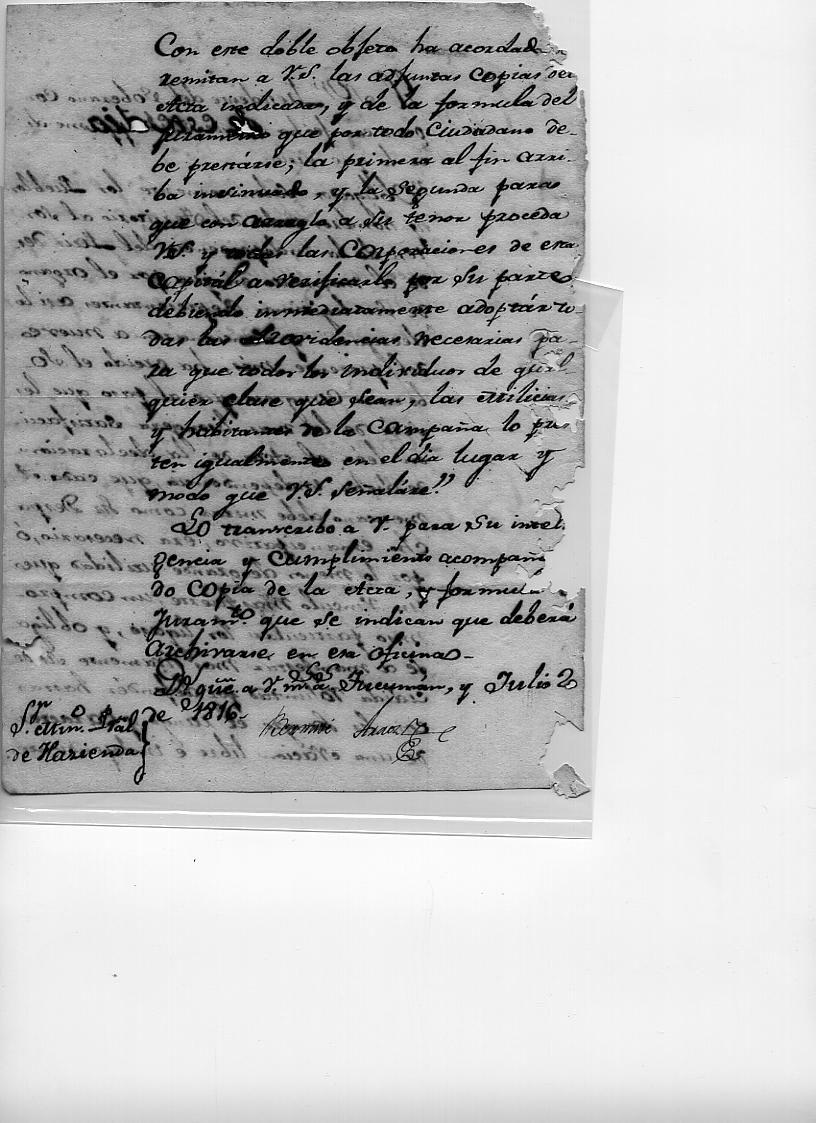 Con este doble obgeto ha acordad
remitan a V.S. las adjuntas Copias del
Acta indicada, y de la formula del
juramento que por todo Ciudadano de-
be prestárse; la primera al fin arri-
ba insinuado, y la segunda para
que con arreglo a su tenor proceda
V.S. y todas las Corporaciones de esa
Capitál a verificarlo por su parte
debiendo inmediatamente adoptár to-
das las Providencias necesarias pa-
ra que todos los individuos de qual
quier clase que sean, las Milicias
y habitantes de la Campaña lo pres
ten igualmente en el dia lugar y
modo que V.S. señaláre."
Lo transcribo a V. para su inteli
gencia y Cumplimiento acompañan
do Copia de la Acta, y formula
Juramto. que se indican que deberá
Archivarse en esa oficina-
Ds. gue. a V. ms. as. Tucumán, y Julio 2
de 1816-
Bernavé Araoz
Sor. Min. Pral
de Hazienda